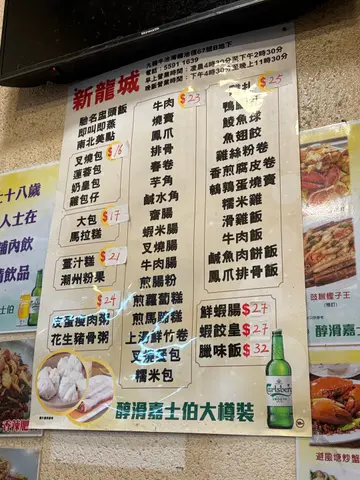 新龍城
電話：5591 1639
早上營業時間：凌晨4時30分至下午2時30分
晚飯營業時間：下午4時30分至晚上11時30分
馳名盅頭飯
即叫即蒸
南北美點
叉燒包
蓮蓉包
奶皇包
雞包仔
$16
大包
馬拉糕
$17
薑汁糕
潮州粉果
$21
$24
皮蛋瘦肉粥
花生豬骨粥
牛肉
$23
燒賣
鳳爪
排骨
春卷
芋角
鹹水角
齋腸
蝦米腸
叉燒腸
牛肉腸
煎腸粉
煎蘿蔔糕
煎馬蹄糕
上湯鮮竹卷
叉燒餐包
糯米包
$25
鴨腳紮
鯪魚球
魚翅餃
雞絲粉卷
香煎腐皮卷
鵪鶉蛋燒賣
糯米雞
滑雞飯
牛肉飯
鹹魚肉餅飯
鳳爪排骨飯
鮮蝦腸 $27
蝦餃皇 $27
臘味飯 $32
Carlsberg
醇滑嘉士伯大樽裝
十八歲
人士在
舖內飲
醇滑嘉士伯
醇滑嘉士
避風塘炒蟹